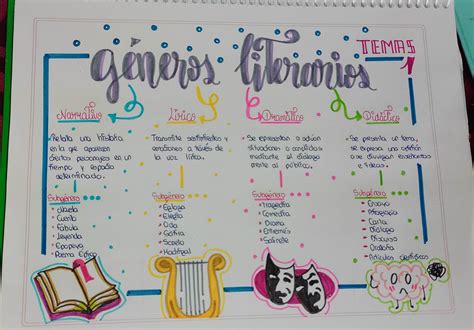 TEMAS 1
géneros literarios
Narrativo
Relata una historia
en la que aparecen
ciertos personajes en un
tiempo y espacio
determinado.
Subgénero
Cuento
Fábula
Leyenda
Epopeya
Poema Épico
Lírico
Transmite sentimientos y
emociones a través de
la voz lírica.
Subgénero
Égloga
Elegía
Oda
Sátira
Soneto
Madrigal
Dramático
Se representan o actúan
situaciones o conflictos
mediante el diálogo
frente al público.
Subgénero
Tragedia
Comedia
Drama
Entremés
Sainete
Didáctico
Se presenta un tema,
se expresa una opinión
o se divulgan enseñanzas
e ideas.
Subgénero
Ensayo
Biografía
Carta
Diálogo
Discurso
Oratoria
Artículos científicos